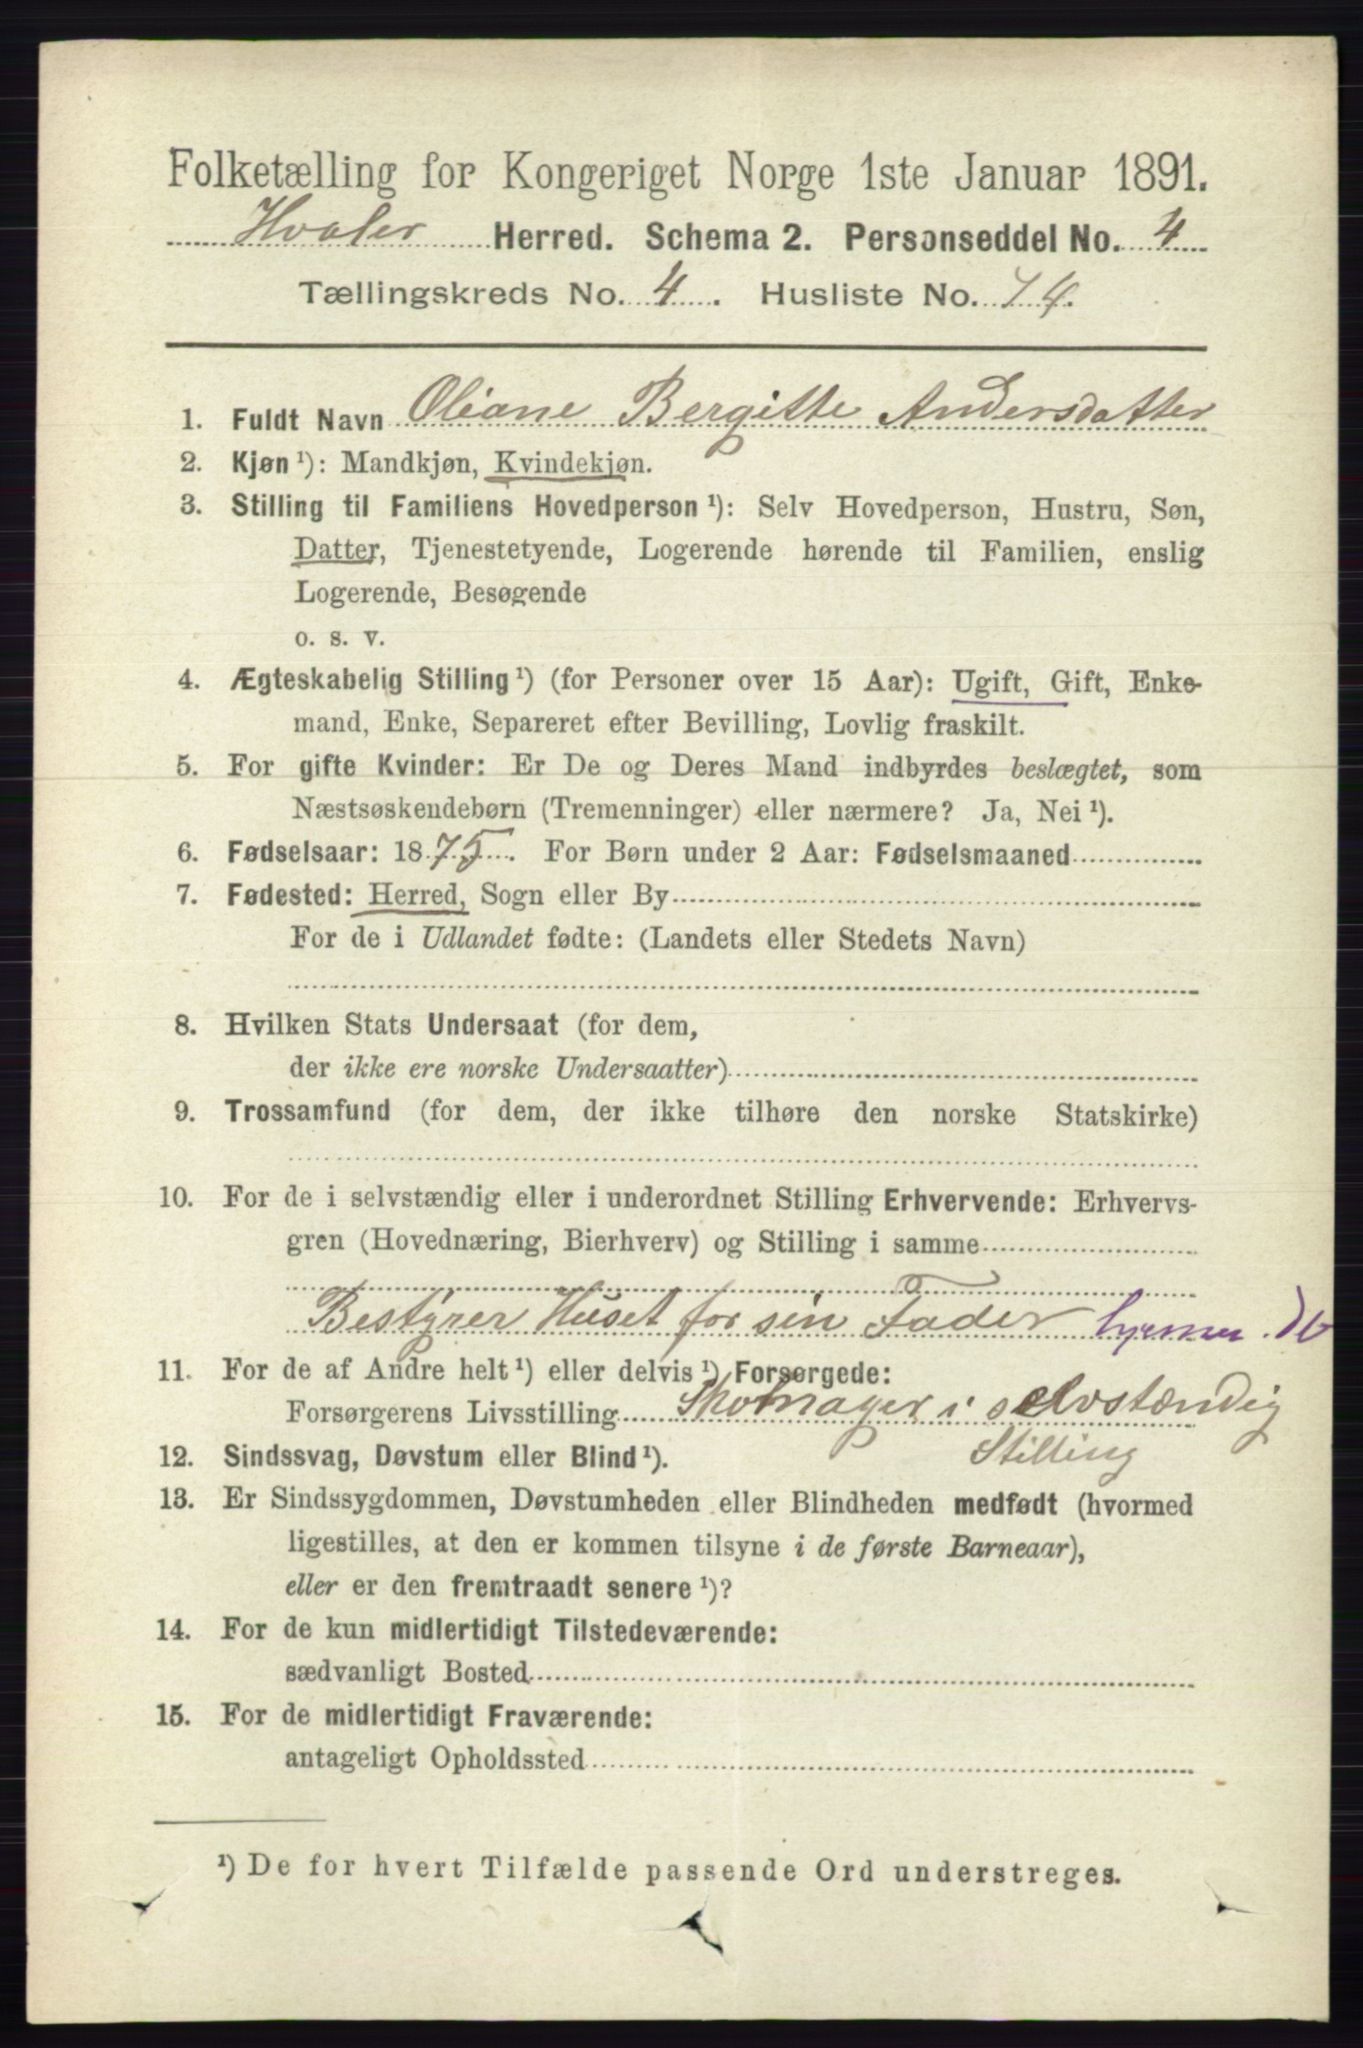 Folketælling for Kongeriget Norge 1ste Januar 1891.
Hvaler Herred. Schema 2. Personseddel No. 4
Tællingskreds No. 4. Husliste No. 74.
1. Fuldt Navn Oliane Bergitte Andersdatter
2. Kjøn ¹): Mandkjøn, Kvindekjøn.
3. Stilling til Familiens Hovedperson ¹): Selv Hovedperson, Hustru, Søn,
Datter, Tjenestetyende, Logerende hørende til Familien, enslig
Logerende, Besøgende
o. s. v.
4. Ægteskabelig Stilling ¹) (for Personer over 15 Aar): Ugift, Gift, Enke-
mand, Enke, Separeret efter Bevilling, Lovlig fraskilt.
5. For gifte Kvinder: Er De og Deres Mand indbyrdes beslægtet, som
Næstsøskendebørn (Tremenninger) eller nærmere? Ja, Nei ¹).
6. Fødselsaar: 1875. For Børn under 2 Aar: Fødselsmaaned
7. Fødested: Herred, Sogn eller By
For de i Udlandet fødte: (Landets eller Stedets Navn)
8. Hvilken Stats Undersaat (for dem,
der ikke ere norske Undersaatter)
9. Trossamfund (for dem, der ikke tilhøre den norske Statskirke)
10. For de i selvstændig eller i underordnet Stilling Erhvervende: Erhvervs-
gren (Hovednæring, Bierhverv) og Stilling i samme
Bestyrer Huset for sin Fader
11. For de af Andre helt ¹) eller delvis ¹) Forsørgede:
Forsørgerens Livsstilling Skomager i selvstændig
Stilling
12. Sindssvag, Døvstum eller Blind ¹).
13. Er Sindssygdommen, Døvstumheden eller Blindheden medfødt (hvormed
ligestilles, at den er kommen tilsyne i de første Barneaar),
eller er den fremtraadt senere ¹)?
14. For de kun midlertidigt Tilstedeværende:
sædvanligt Bosted
15. For de midlertidigt Fraværende:
antageligt Opholdssted
¹) De for hvert Tilfælde passende Ord understreges.